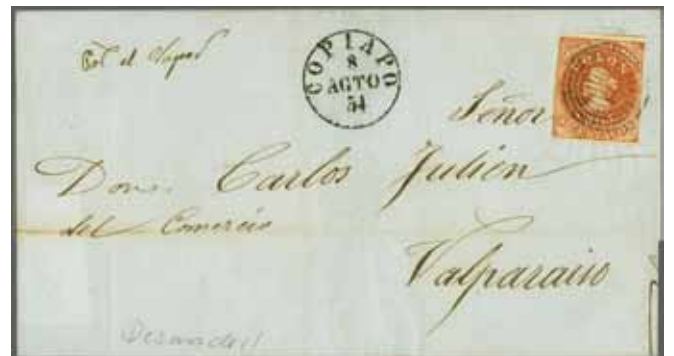 Por el Vapor
COPIAPO
8
AGTO
54
COLON
Señor
Don Carlos Julien
del Comercio
Valparaiso